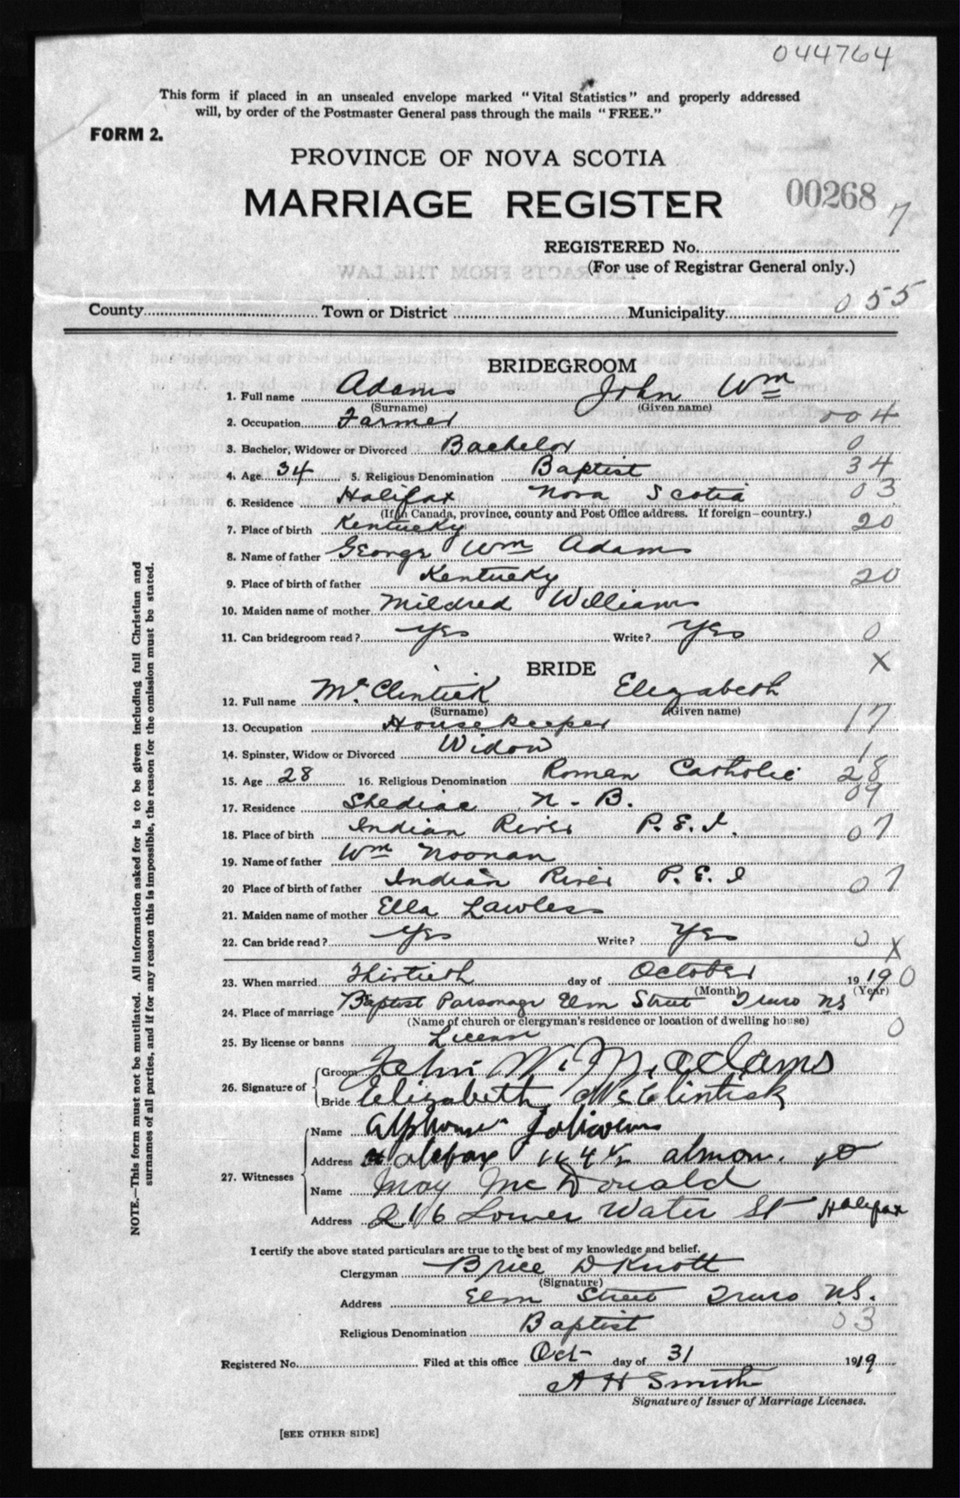 044764
This form if placed in an unsealed envelope marked "Vital Statistics" and properly addressed
will, by order of the Postmaster General pass through the mails "FREE."
FORM 2.
PROVINCE OF NOVA SCOTIA
MARRIAGE REGISTER
00268 7
REGISTERED No.
(For use of Registrar General only.)
EXTRACTS FROM THE LAW
County Town or District Municipality 055
BRIDEGROOM
1. Full name Adams John Wm
(Surname) (Given name)
2. Occupation Farmer 004
3. Bachelor, Widower or Divorced Bachelor 0
4. Age 34 5. Religious Denomination Baptist 34
6. Residence Halifax Nova Scotia 03
(If in Canada, province, county and Post Office address. If foreign—country.)
7. Place of birth Kentucky 20
8. Name of father George Wm Adams
9. Place of birth of father Kentucky 20
10. Maiden name of mother Mildred Williams
11. Can bridegroom read? Yes Write? Yes 0
X
BRIDE
12. Full name McClintick Elizabeth
(Surname) (Given name)
13. Occupation Housekeeper 17
14. Spinster, Widow or Divorced Widow 1
15. Age 28 16. Religious Denomination Roman Catholic 28
17. Residence Shediac N-B. 09
18. Place of birth Indian River P.E.I. 07
19. Name of father Wm Noonan
20 Place of birth of father Indian River P.E.I 07
21. Maiden name of mother Ella Lawless
22. Can bride read? Yes Write? Yes 0 X
23. When married Thirtieth day of October 1919 0
(Month) (Year)
24. Place of marriage Baptist Parsonage Elm Street Truro NS
(Name of church or clergyman's residence or location of dwelling house)
25. By license or banns License 0
26. Signature of Groom John W. Mcadams
Bride Elizabeth McClintick
27. Witnesses Name
Address Halifax almon.
Name May McDonald
Address 216 Lower Water St Halifax
I certify the above stated particulars are true to the best of my knowledge and belief.
Clergyman Brice D Knott
(Signature)
Address Elm Street Truro N.S.
Religious Denomination Baptist 03
Registered No. Filed at this office Oct- day of 31 1919
A H Smith
Signature of Issuer of Marriage Licenses.
[SEE OTHER SIDE]
NOTE.—This form must not be mutilated. All information asked for is to be given including full Christian and
surnames of all parties, and if for any reason this is impossible, the reason for the omission must be stated.